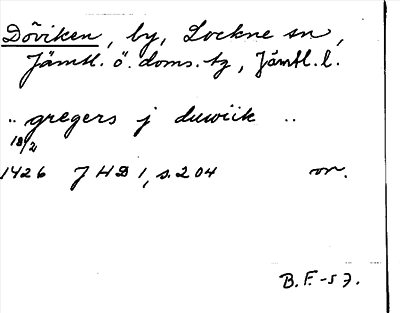 Döviken, by, Lockne sn,
Jämtl. ö. doms. tg, Jämtl. l.
.. gregers j duwiik ..
18/2
1426 JHD 1, s. 204 or.
B.F.-57.